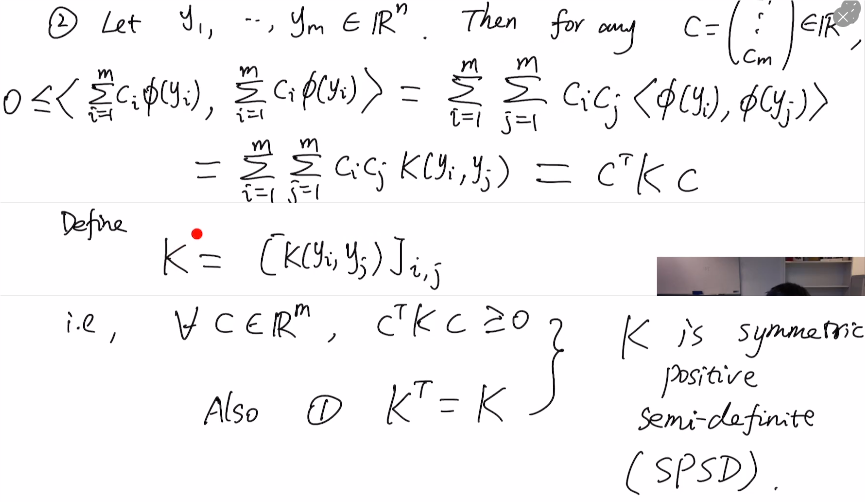 ② Let y₁, ..., yₘ ∈ ℝⁿ. Then for any C = (⋮ cₘ) ∈ ℝ,
0 ≤ ⟨ ∑_{i=1}^{m} cᵢφ(yᵢ), ∑_{i=1}^{m} cᵢφ(yᵢ) ⟩ = ∑_{i=1}^{m} ∑_{j=1}^{m} cᵢcⱼ ⟨φ(yᵢ), φ(yⱼ)⟩
= ∑_{i=1}^{m} ∑_{j=1}^{m} cᵢcⱼ K(yᵢ, yⱼ) = Cᵀ K C
Define
K = [K(yᵢ, yⱼ)]_{i,j}
i.e, ∀ C ∈ ℝᵐ, Cᵀ K C ≥ 0
Also ① Kᵀ = K
K is symmetric
positive
semi-definite
(SPSD).